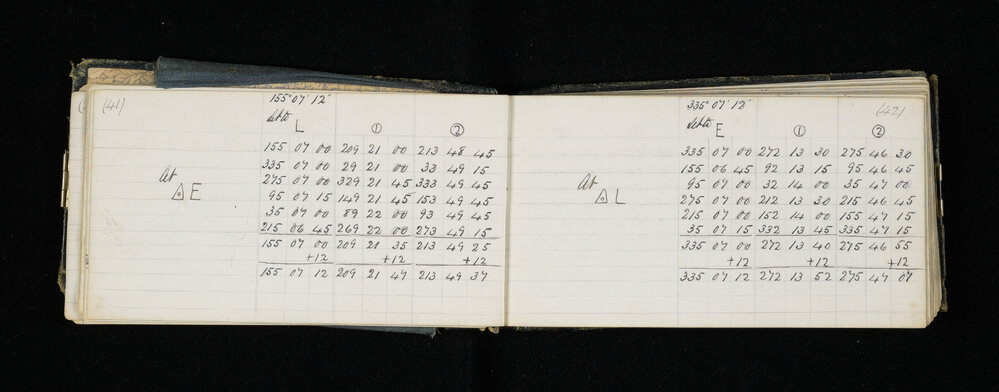 (41)
155° 07' 12"
Set to L ① ②
155 07 00 209 21 00 213 48 45
335 07 00 29 21 00 33 49 15
275 07 00 329 21 45 333 49 45
95 07 15 149 21 45 153 49 45
35 07 00 89 22 00 93 49 45
215 06 45 269 22 00 273 49 15
155 07 00 209 21 35 213 49 25
+12 +12 +12
155 07 12 209 21 47 213 49 37
At
△ E
(42)
335° 07' 12"
Set to E ① ②
335 07 00 272 13 30 275 46 30
155 06 45 92 13 15 95 46 45
95 07 00 32 14 00 35 47 00
275 07 00 212 13 30 215 46 45
215 07 00 152 14 00 155 47 15
35 07 15 332 13 45 335 47 15
335 07 00 272 13 40 275 46 55
+12 +12 +12
335 07 12 272 13 52 275 47 07
At
△ L